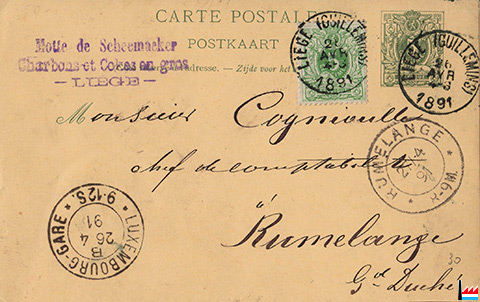 CARTE POSTALE
POSTKAART
adresse. — Zijde voor het
Motte de Scheemaeker
Charbons et Cokes en gros
— LIEGE —
LIEGE (GUILLEMINS)
26
AVR
1891
LIEGE (GUILLEMINS)
26
AVR
1891
Monsieur Cognioulle
chef de comptabilité
à
Rumelange
Gd Duché
RUMELANGE
8-9M.
LUXEMBOURG-GARE
9-12S.
B
26 4
91
30